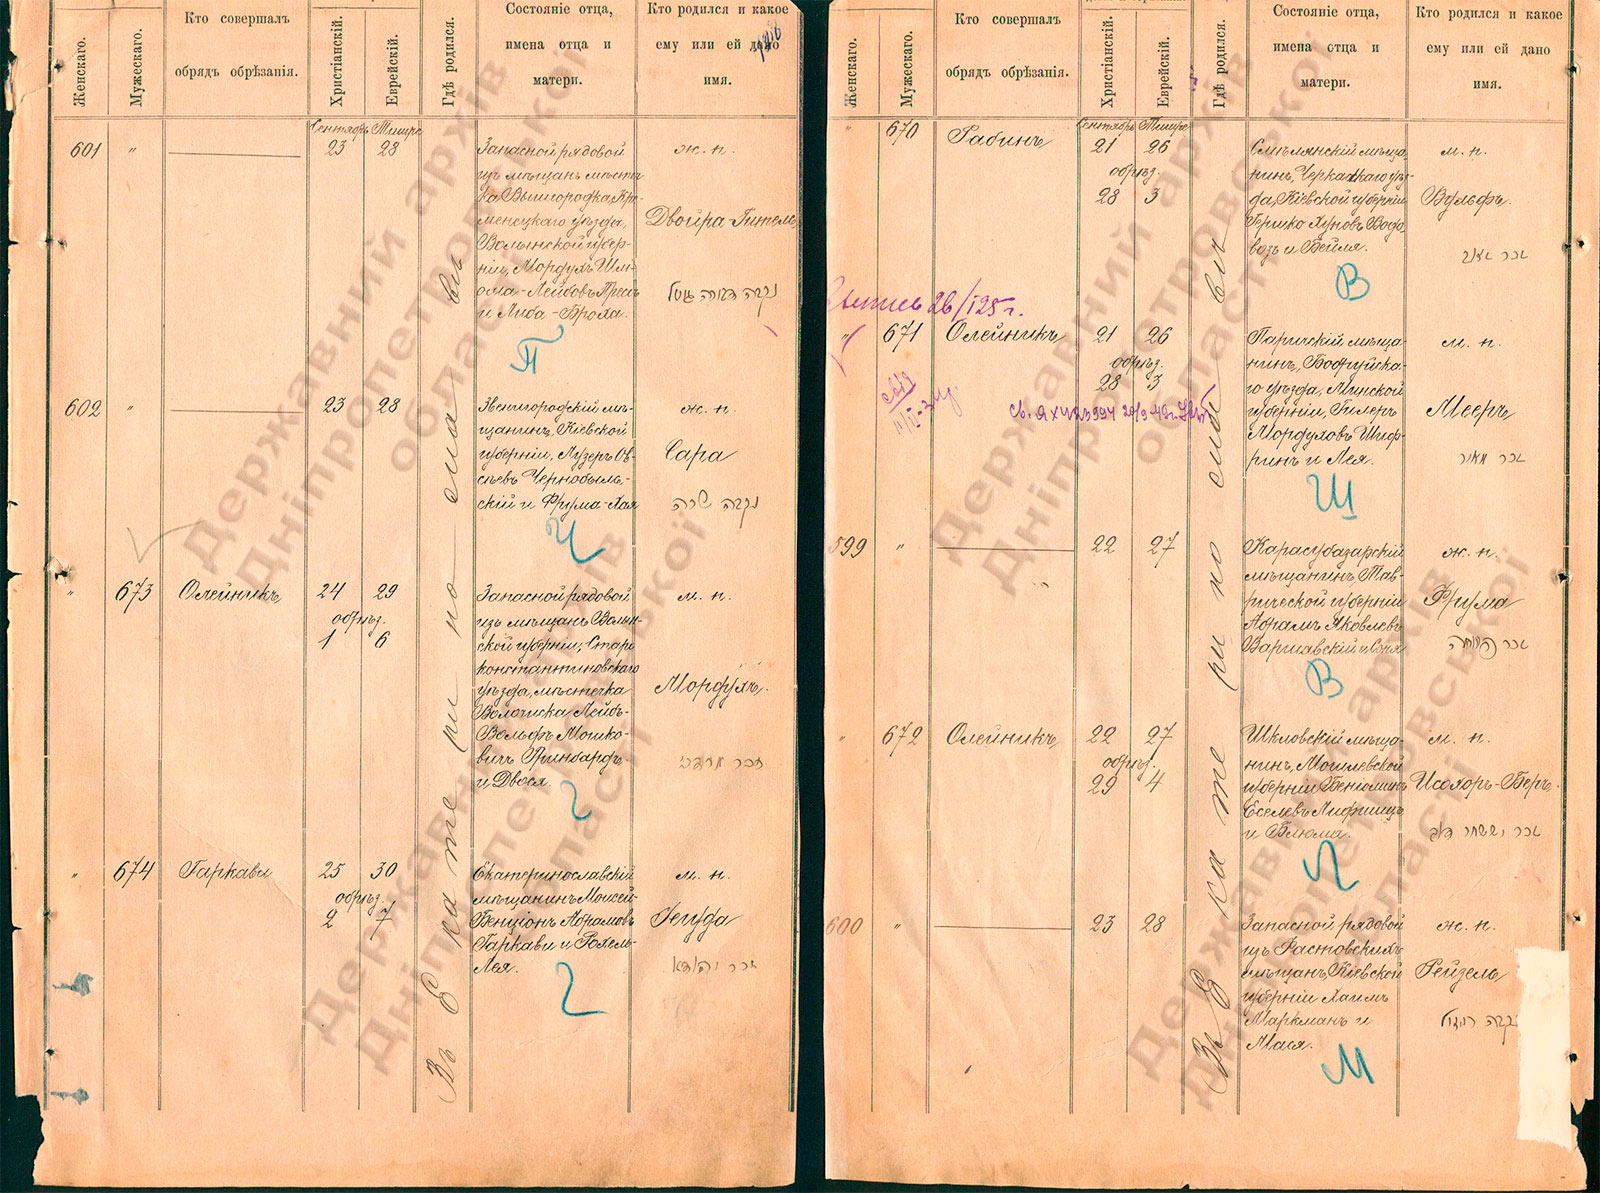 Женскаго.
Мужескаго.
Кто совершалъ
обрядъ обрѣзанія.
Христіанскій.
Еврейскій.
Гдѣ родился.
Состояніе отца,
имена отца и
матери.
Кто родился и какое
ему или ей дано
имя.
Сентябрь Тишре
601 " 23 28
Запасной рядовой
изъ мѣщанъ мѣстеч-
ка Вышгородка Кре-
менецкаго уѣзда,
Волынской губер-
ніи, Мордухъ Шлі-
ома-Лейбовъ
и Либа-Брола.
ж. п.
Двойра-Гитель
נקבה דבורה גיטל
П
602 " 23 28
Звенигородскій мѣ-
щанинъ, Кіевской
губерніи, Лузеръ Ов-
сѣевъ Чернобыль-
скій и Фрума-Хая
ж. п.
Сара
נקבה שרה
Ч
" 673 Олейникъ 24 29
обрѣз.
1 6
Запасной рядовой
изъ мѣщанъ Волын-
ской губерніи, Старо
константиновскаго
уѣзда, мѣстечка
Волочиска Лейбъ-
Вольфъ Мошко-
вичъ Гринбардъ
и Двося.
м. п.
Мордухъ.
זכר מרדכי
Г
" 674 Гаркави 25 30
обрѣз.
2 7
Екатеринославскій
мѣщанинъ Моисей-
Бенціонъ Абрамовъ
Гаркави и Рохель-
Лея.
м. п.
Іегуда
זכר יהודא
Г
Въ Екатеринославѣ
Женскаго.
Мужескаго.
Кто совершалъ
обрядъ обрѣзанія.
Христіанскій.
Еврейскій.
Гдѣ родился.
Состояніе отца,
имена отца и
матери.
Кто родился и какое
ему или ей дано
имя.
Сентябрь Тишре
" 670 Рабинъ 21 26
обрѣз.
28 3
Смѣлянскій мѣща-
нинъ, Черкасскаго уѣз-
да, Кіевской губерніи
Гершко Хуновъ Водо-
возъ и Бейля.
м. п.
Вульфъ.
זכר וואלף
В
26/I 25 г.
" 671 Олейникъ 21 26
обрѣз.
28 3
Паричскій мѣща-
нинъ, Бобруйска-
го уѣзда, Минской
губерніи, Гилеръ
Мордуховъ Шиф-
ринъ и Лея.
м. п.
Мееръ
זכר מאיר
Ш
599 " 22 27
Карасубазарскій
мѣщанинъ, Тав-
рической губерніи
Абрамъ Яковлевъ
Варшавскій и Соня
ж. п.
Фрума
В
" 672 Олейникъ 22 27
обрѣз.
29 4
Шкловскій мѣща-
нинъ, Могилевской
губерніи Беніоминъ
Еселевъ Лифшицъ
и Блюма.
м. п.
Исохоръ-Беръ.
זכר יששכר דוב
Л
600 " 23 28
Запасной рядовой
изъ Растовскихъ
мѣщанъ, Кіевской
губерніи Хаимъ
Маркманъ и
Мася.
ж. п.
Рейзель
נקבה רייזל
М
Въ Екатеринославѣ
Державний архів
Дніпропетровської
області